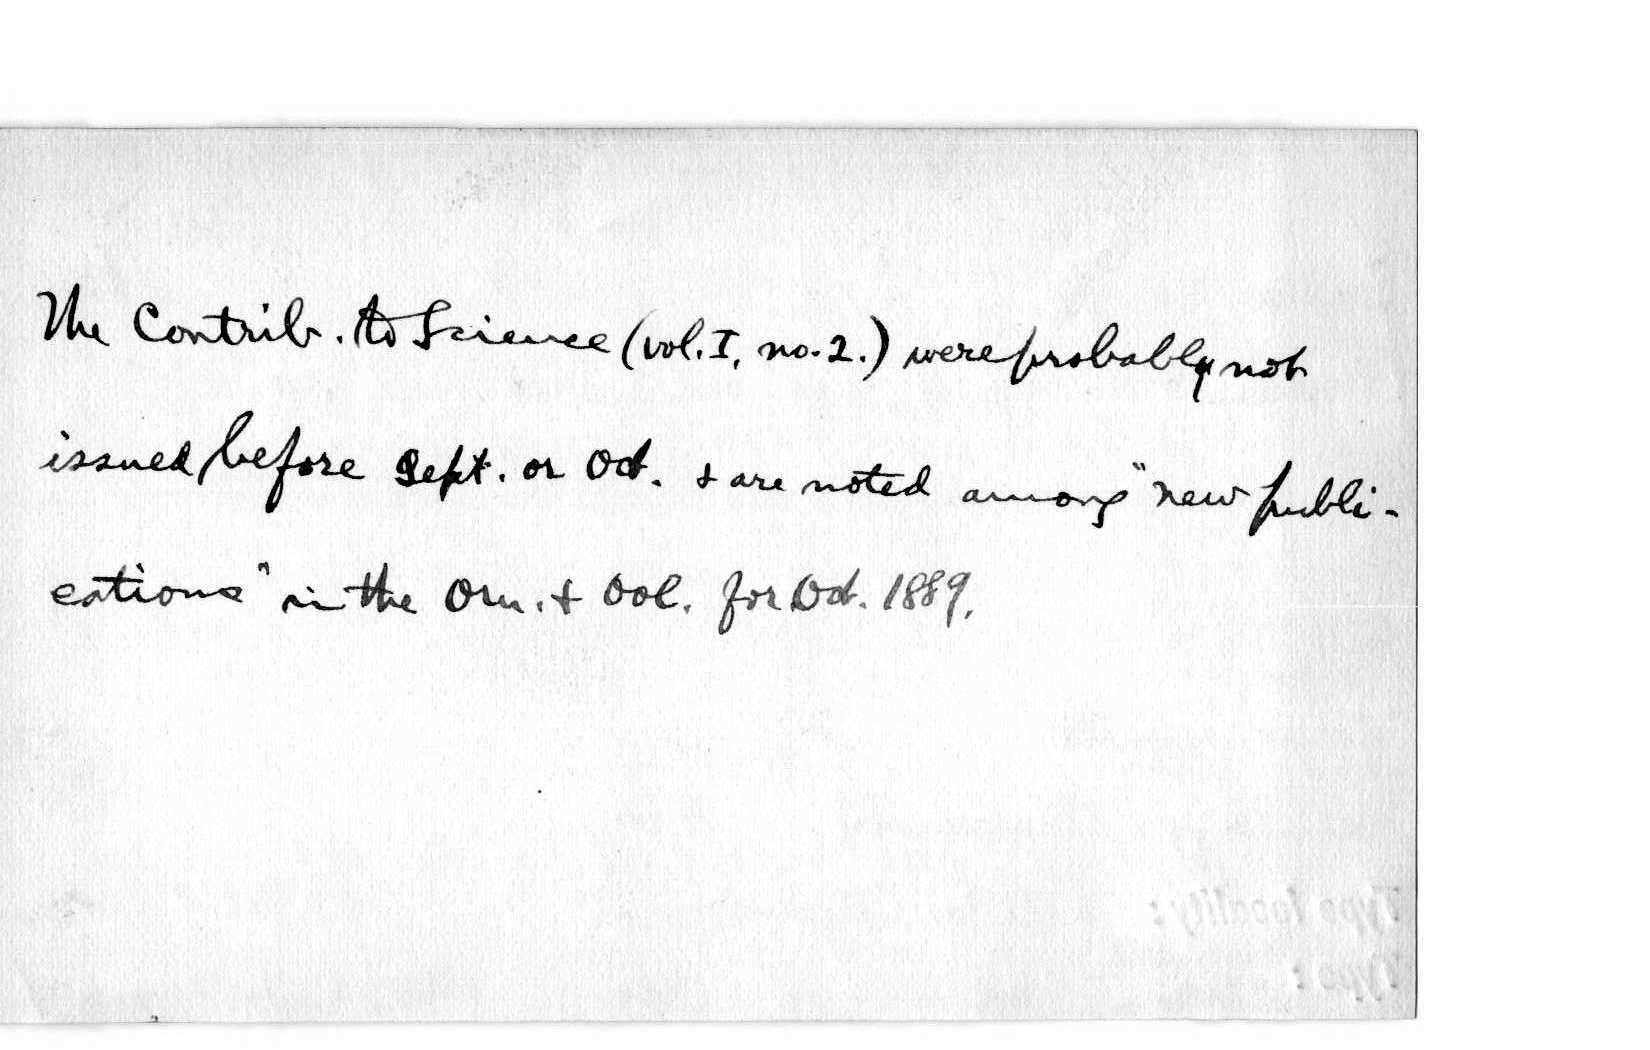 The Contrib. to Science (vol. I, no. 2.) were probably not
issued before Sept. or Oct. & are noted among "new publi-
cations" in the Orn. & Ool. for Oct. 1889.
Type locality:
Type: